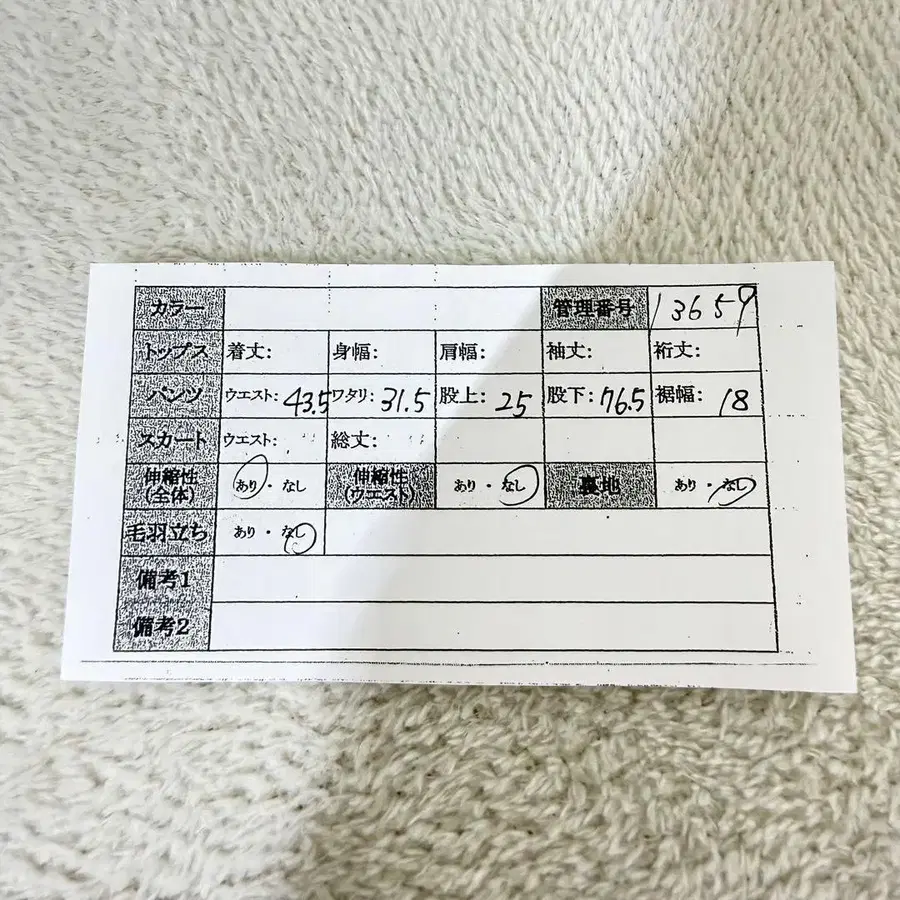 カラー 管理番号 13659
トップス 着丈: 身幅: 肩幅: 袖丈: 裄丈:
パンツ ウエスト: 43.5 ワタリ: 31.5 股上: 25 股下: 76.5 裾幅: 18
スカート ウエスト: 総丈:
伸縮性(全体) あり・なし 伸縮性(ウエスト) あり・なし 裏地 あり・なし
毛羽立ち あり・なし
備考1
備考2